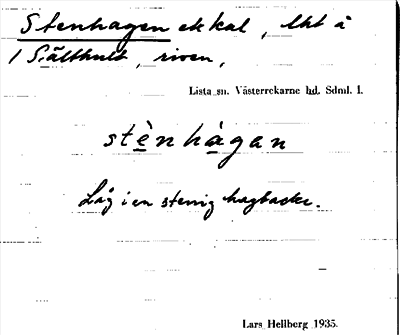 Stenhagen ek kal, lht å
1 Sälthult, riven,
Lista sn. Västerrekarne hd. Sdml. 1.
stènhàgan
Låg i en stenig hagbacke.
Lars Hellberg 1935.